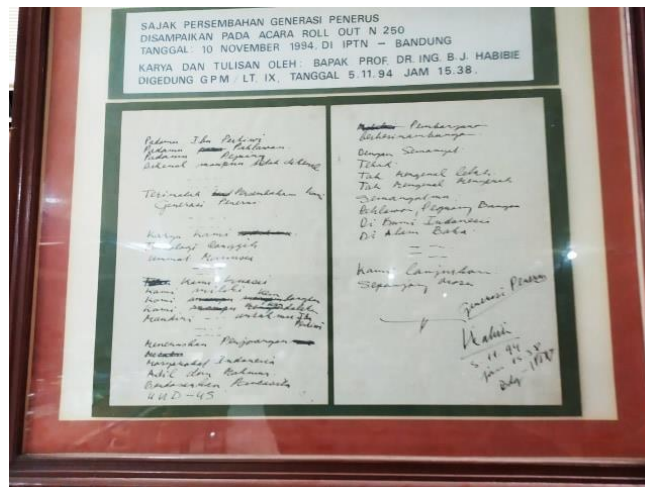 SAJAK PERSEMBAHAN GENERASI PENERUS
DISAMPAIKAN PADA ACARA ROLL OUT N 250
TANGGAL: 10 NOVEMBER 1994. DI IPTN – BANDUNG
KARYA DAN TULISAN OLEH: BAPAK PROF. DR. ING. B.J. HABIBIE
DIGEDUNG GPM / LT. IX, TANGGAL 5.11.94 JAM 15.38.
Padamu Ibu Pertiwi
Padamu Pahlawan
Padamu Pejuang
Dikenal maupun tidak dikenal
Terimalah Persembahan kami
Generasi Penerus
Karya kami
Teknologi Canggih
ummat Manusia
Kami
Kami miliki
Kami
Kami
Mandiri untukmu Ibu
Pertiwi
Meneruskan Perjoangan
Masyarakat Indonesia
Adil dan Makmur
Berdasarkan Pancasila
UUD-45
Pembangunan
Berkesinambungan
Dengan Semangat
Tekad
Tak Mengenal Lelah
Tak Mengenal Menyerah
Semangatmu
Pahlawan, Pejuang Bangsa
Di Bumi Indonesia
Di Alam Baka
Kami Lanjutkan
Sepanjang Masa
Generasi Penerus
5.11.94
jam 15.38